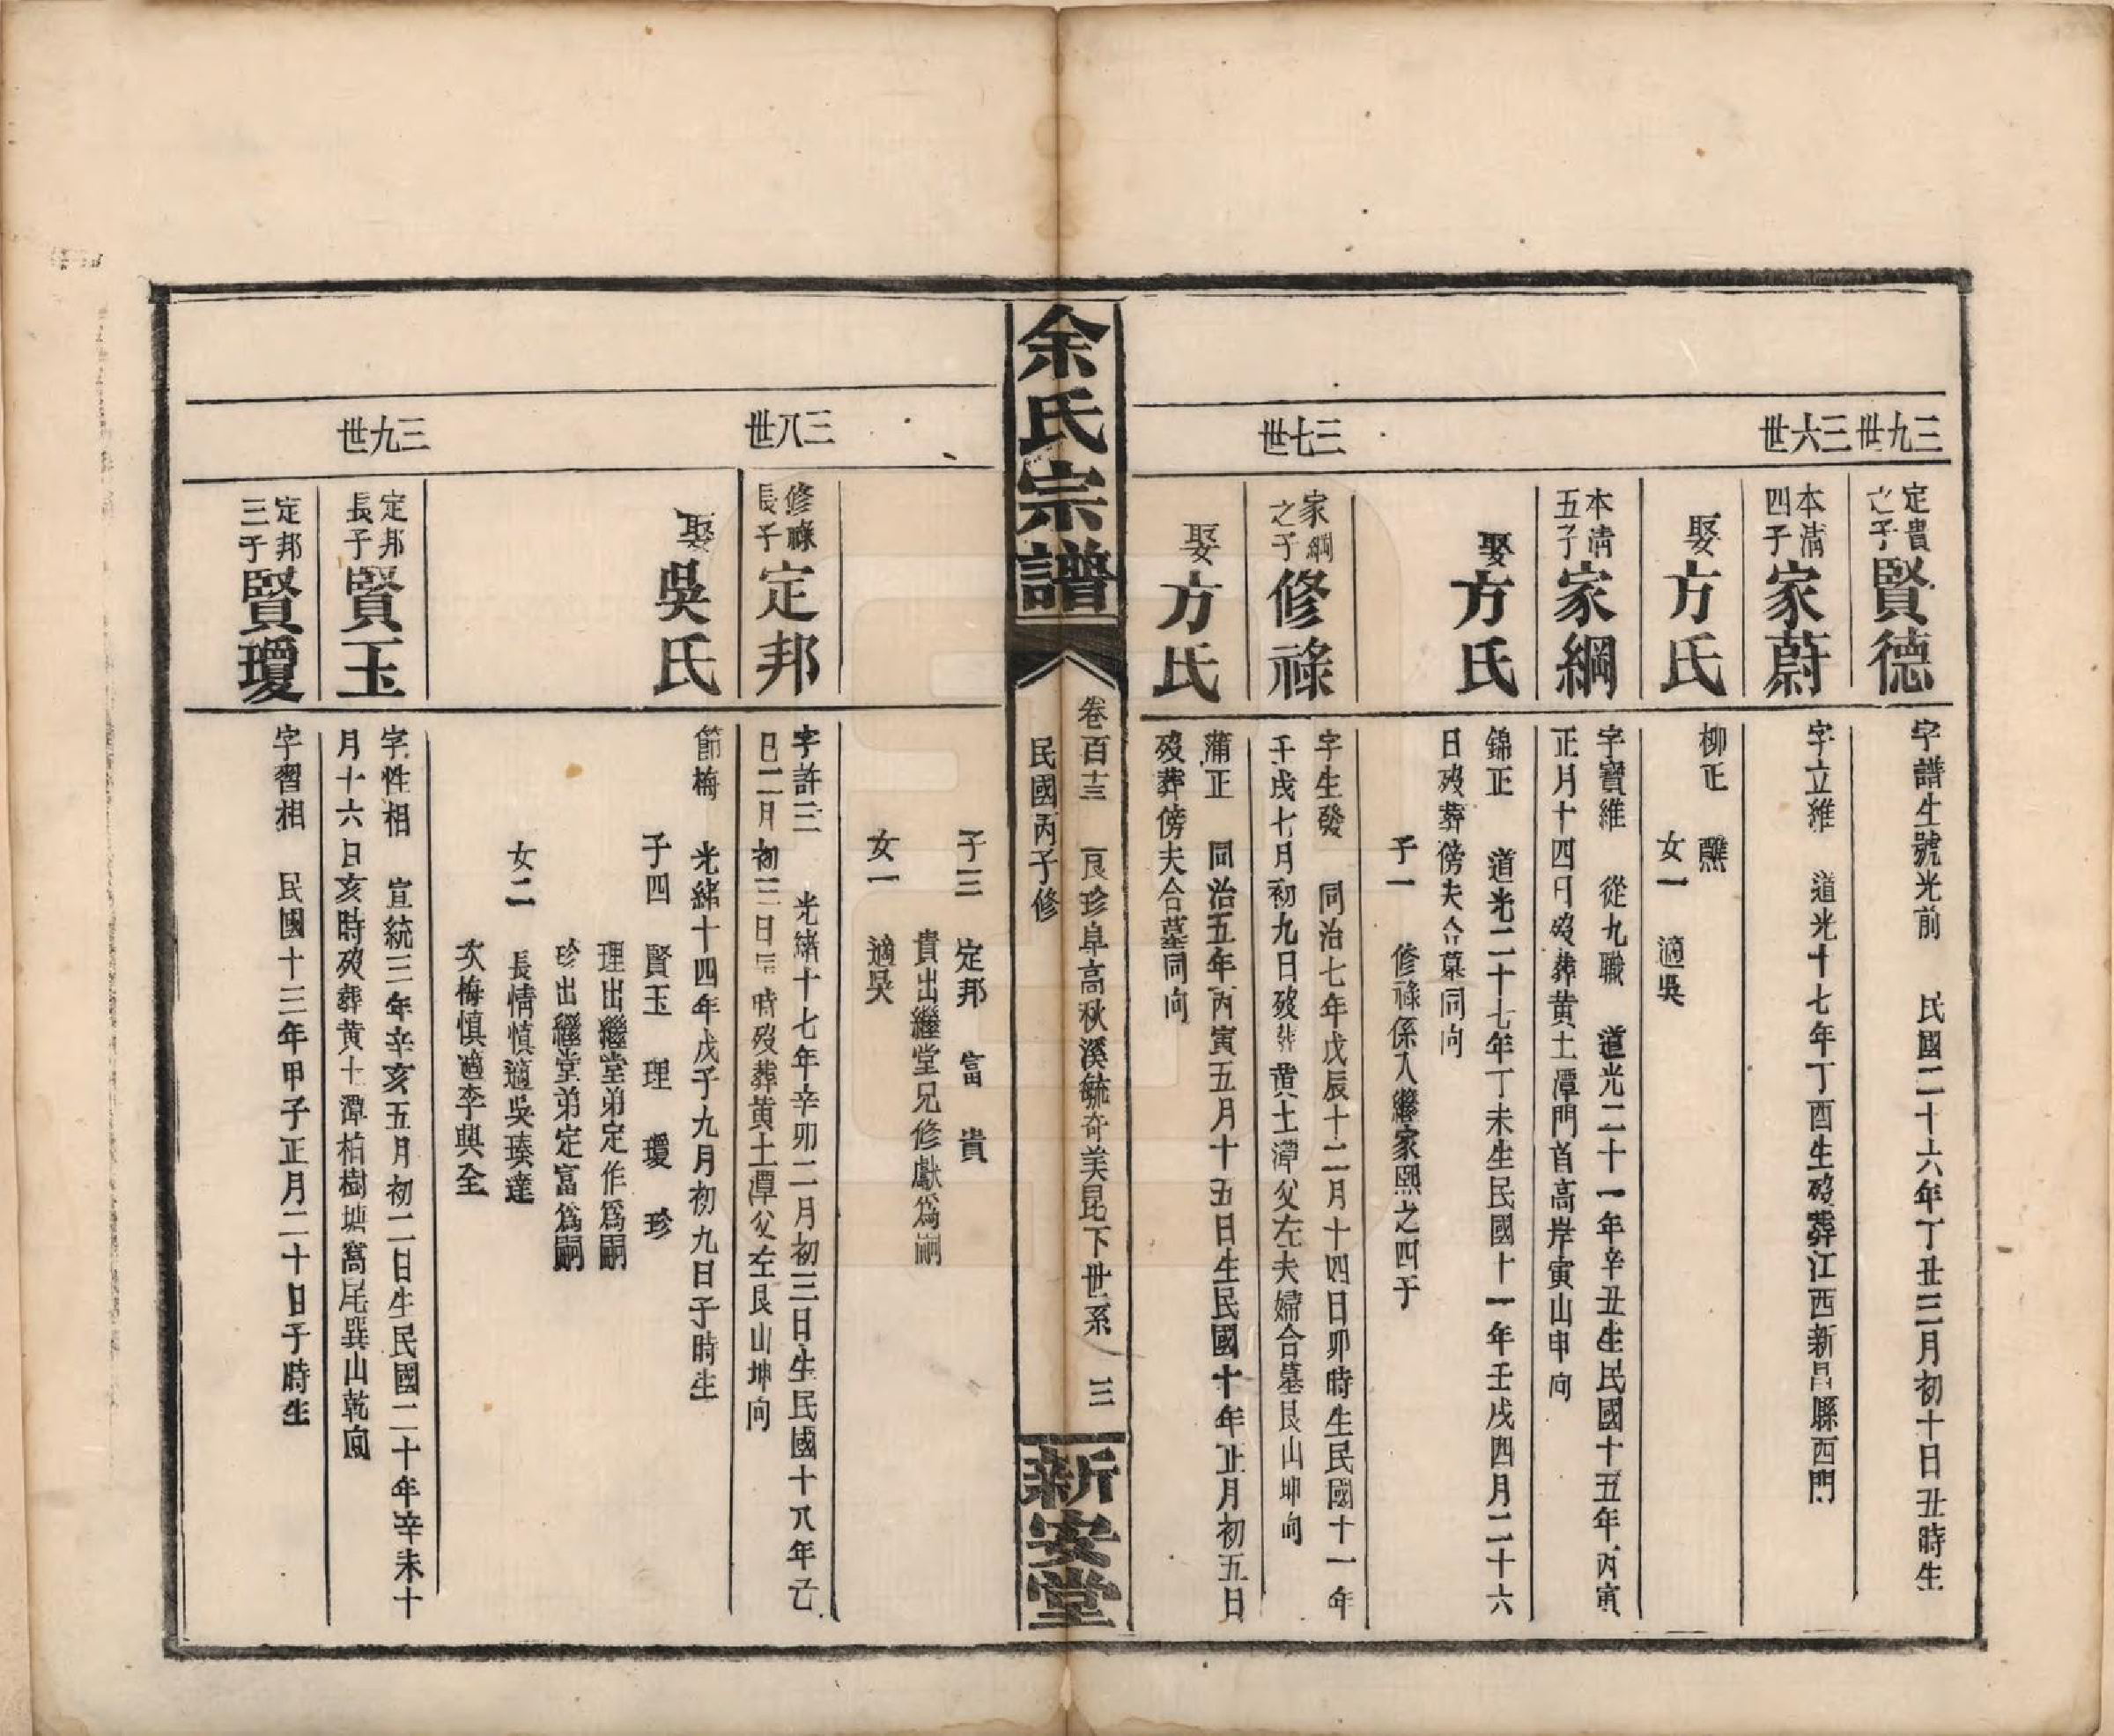 三九世
定貴之子 賢德
字譜生號光前 民國二十六年丁丑三月初十日丑時生
三六世
本清四子 家蔚
字立維 道光十七年丁酉生歿葬江西新昌縣西門
娶 方氏
柳正 熙
女一 適吳
本清五子 家綱
字寶維 從九職 道光二十一年辛丑生民國十五年丙寅
正月十四日歿葬黄土潭門首高岸寅山申向
娶 方氏
錦正 道光二十七年丁未生民國十一年壬戌四月二十六
日歿葬傍夫合墓同向
子一 修祿係入繼家熙之四子
三七世
家綱之子 修祿
字生發 同治七年戊辰十二月十四日卯時生民國十一年
壬戌七月初九日歿葬黄土潭父左夫婦合墓艮山坤向
娶 方氏
蒲正 同治五年丙寅五月十五日生民國十年正月初五日
歿葬傍夫合墓同向
余氏宗譜
卷百十三 艮珍阜高秋溪毓奇美昆下世系 三
民國丙子修
新安堂
子三 定邦 富 貴
貴出繼堂兄修獻爲嗣
女一 適吳
三八世
修祿長子 定邦
字許三 光緒十七年辛卯二月初三日生民國十八年己
巳二月初三日 時歿葬黄土潭父左艮山坤向
娶 吳氏
節梅 光緒十四年戊子九月初九日子時生
子四 賢玉 理 瓊 珍
理出繼堂弟定作爲嗣
珍出繼堂弟定富爲嗣
女二 長情慎適吳瑧達
次梅慎適李與全
三九世
定邦長子 賢玉
字性相 宣統三年辛亥五月初二日生民國二十年辛未十
月十六日亥時歿葬黄土潭柏樹塘窩尾巽山乾向
定邦三子 賢瓊
字習相 民國十三年甲子正月二十日子時生